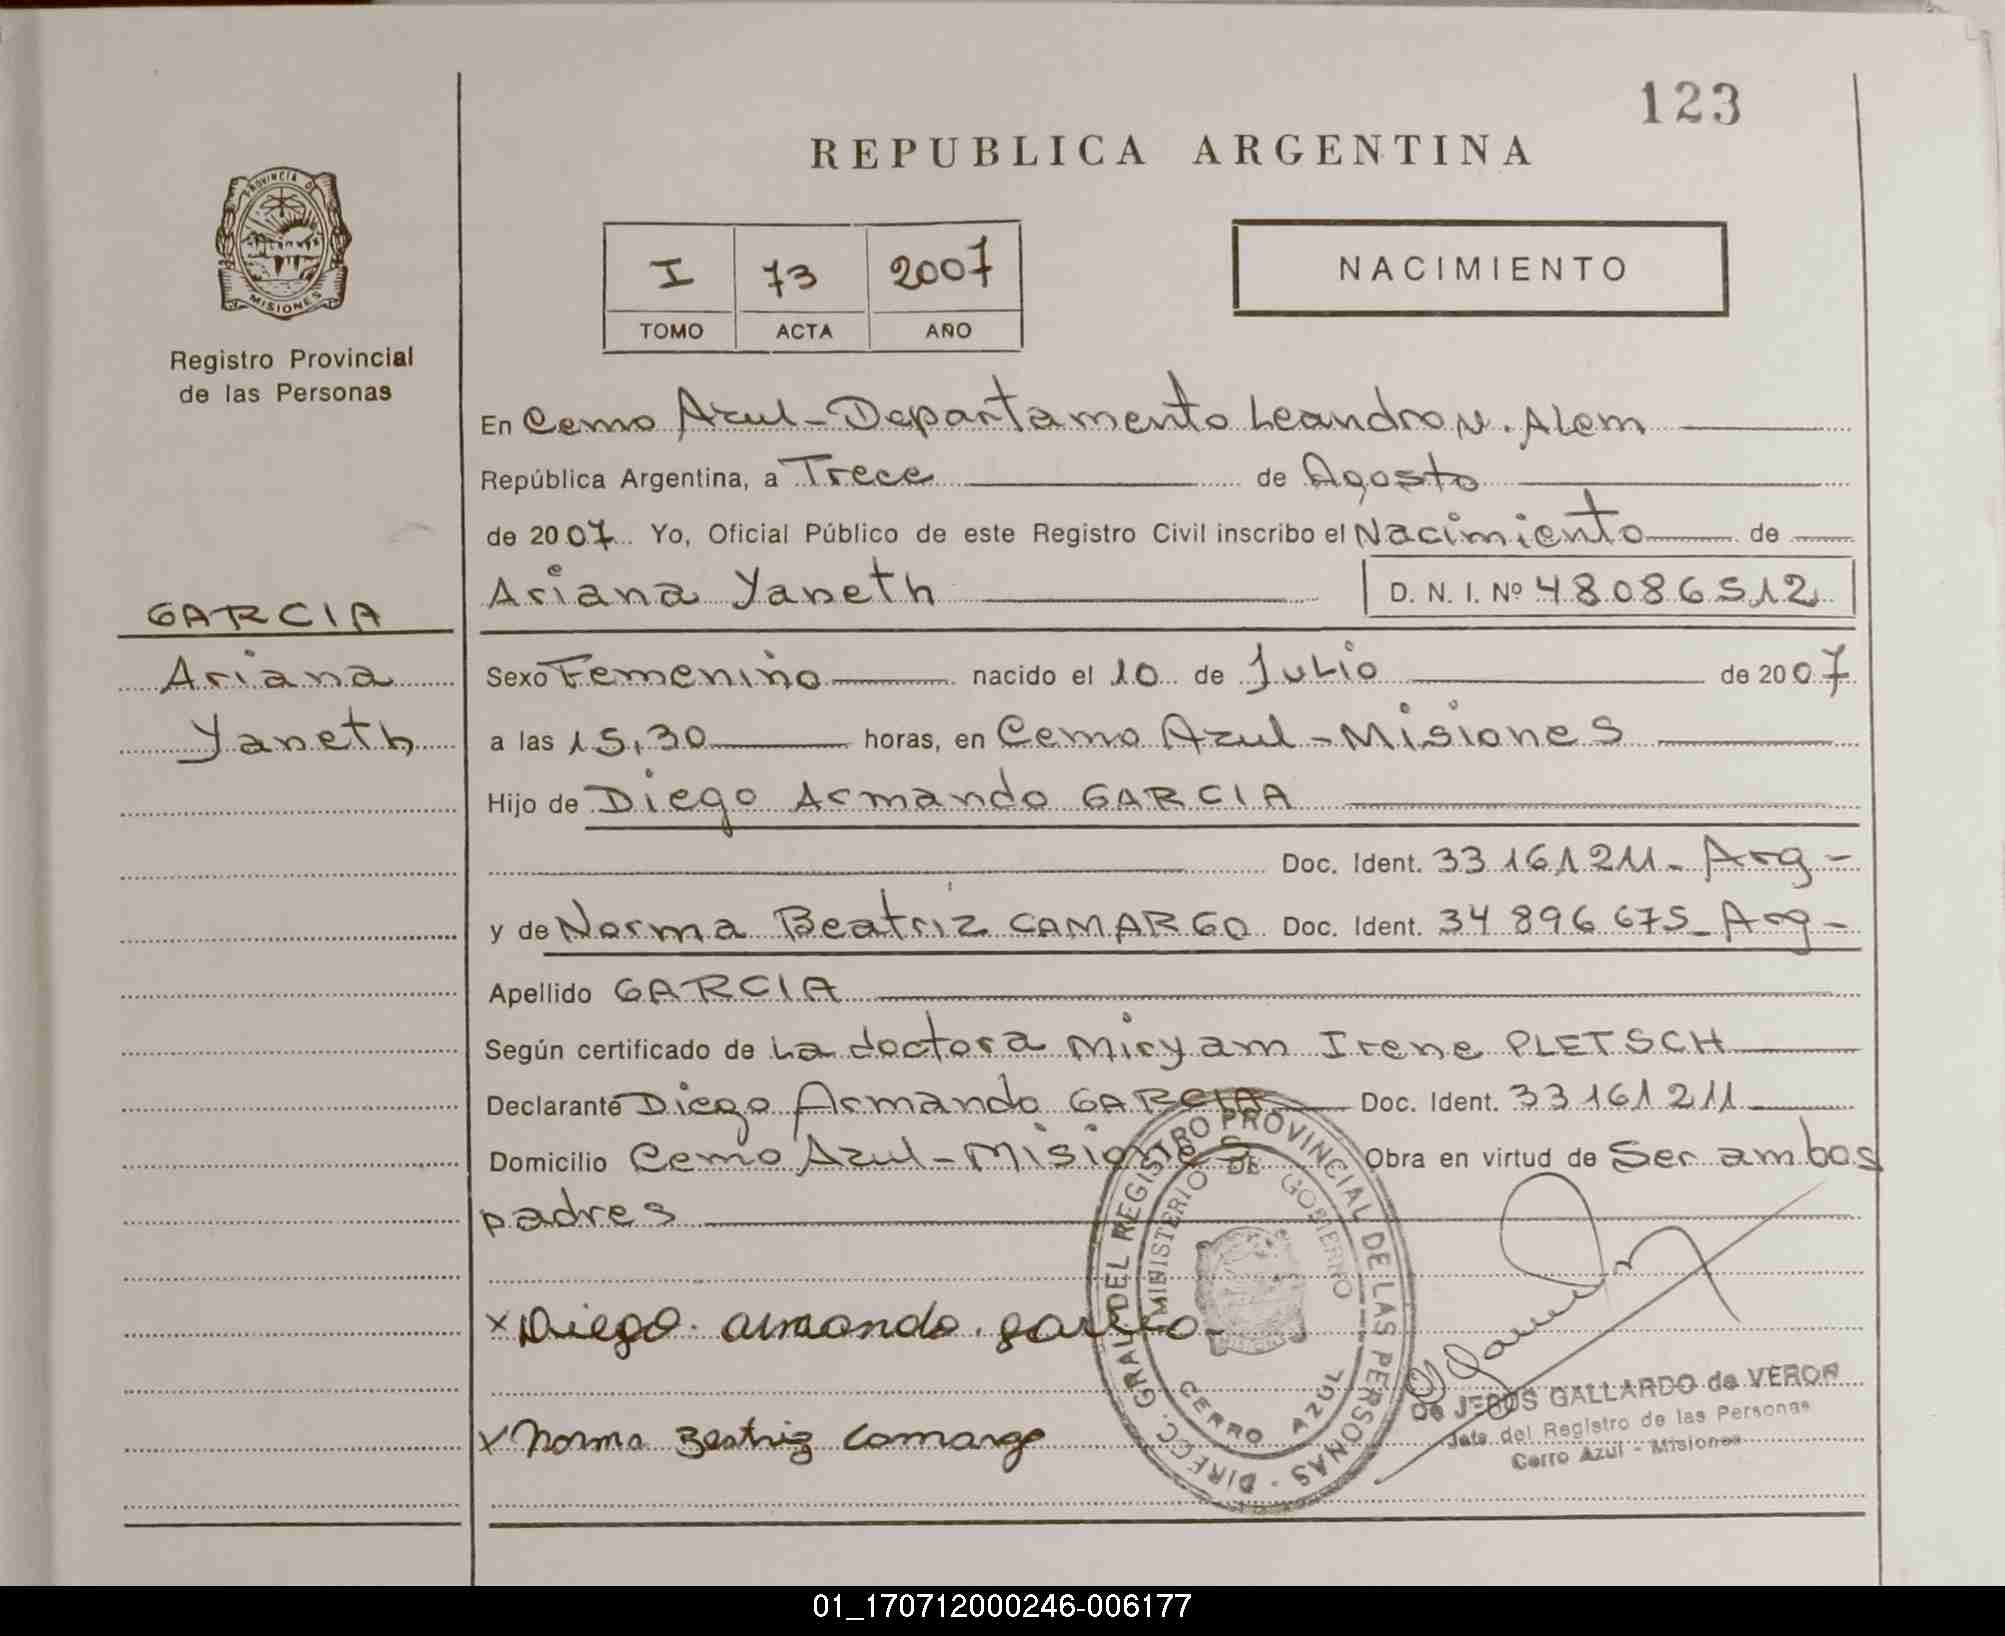 123
REPUBLICA ARGENTINA
PROVINCIA DE
MISIONES
Registro Provincial
de las Personas
I 73 2007
TOMO ACTA AÑO
NACIMIENTO
En Cerro Azul - Departamento Leandro N. Alem
República Argentina, a Trece de Agosto
de 2007 Yo, Oficial Público de este Registro Civil inscribo el Nacimiento de
Ariana Yaneth D. N. I. Nº 48086512
GARCIA
Ariana
Yaneth
Sexo Femenino nacido el 10 de Julio de 2007
a las 15,30 horas, en Cerro Azul - Misiones
Hijo de Diego Armando GARCIA
Doc. Ident. 33 161 211 - Arg -
y de Norma Beatriz CAMARGO Doc. Ident. 34 896 675 - Arg -
Apellido GARCIA
Según certificado de La doctora Miryam Irene PLETSCH
Declarante Diego Armando GARCIA Doc. Ident. 33 161 211
Domicilio Cerro Azul - Misiones Obra en virtud de Ser ambos
padres
x Diego armando garcia
x Norma Beatriz Camargo
DIRECC. GRAL. DEL REGISTRO PROVINCIAL DE LAS PERSONAS -
MINISTERIO DE GOBIERNO
CERRO AZUL
De JESUS GALLARDO de VERON
Jefe del Registro de las Personas
Cerro Azul - Misiones
01_170712000246-006177